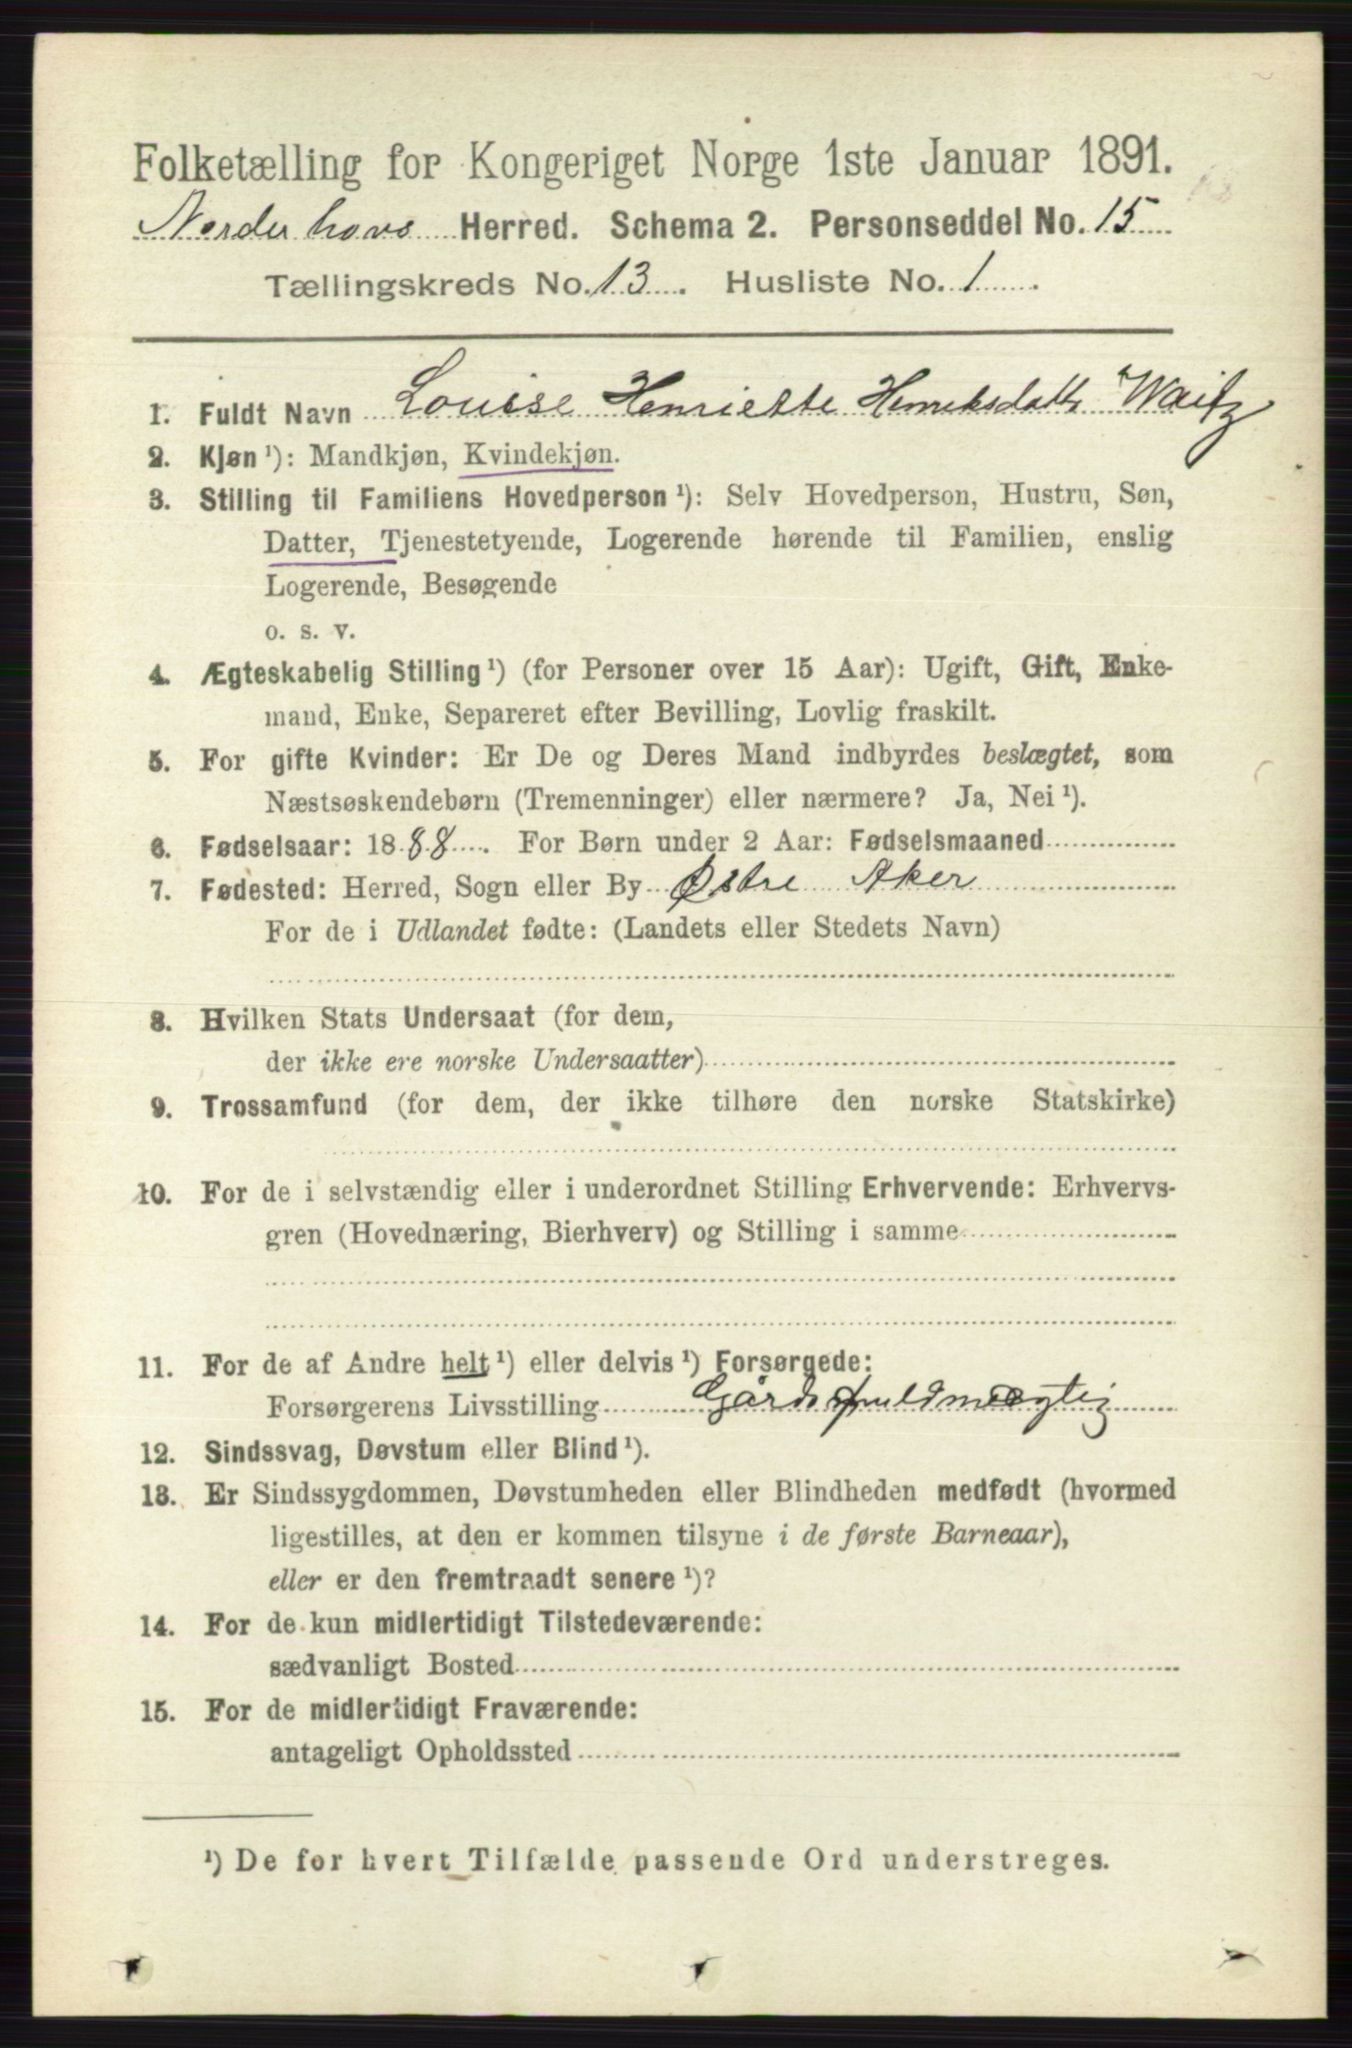 Folketælling for Kongeriget Norge 1ste Januar 1891.
Norderhovs Herred. Schema 2. Personseddel No. 15
Tællingskreds No. 13. Husliste No. 1.
1. Fuldt Navn Louise Henriette Henriksdatt Waitz
2. Kjøn ¹): Mandkjøn, Kvindekjøn.
3. Stilling til Familiens Hovedperson ¹): Selv Hovedperson, Hustru, Søn,
Datter, Tjenestetyende, Logerende hørende til Familien, enslig
Logerende, Besøgende
o. s. v.
4. Ægteskabelig Stilling ¹) (for Personer over 15 Aar): Ugift, Gift, Enke-
mand, Enke, Separeret efter Bevilling, Lovlig fraskilt.
5. For gifte Kvinder: Er De og Deres Mand indbyrdes beslægtet, som
Næstsøskendebørn (Tremenninger) eller nærmere? Ja, Nei ¹).
6. Fødselsaar: 1888. For Børn under 2 Aar: Fødselsmaaned
7. Fødested: Herred, Sogn eller By Østre Aker
For de i Udlandet fødte: (Landets eller Stedets Navn)
8. Hvilken Stats Undersaat (for dem,
der ikke ere norske Undersaatter)
9. Trossamfund (for dem, der ikke tilhøre den norske Statskirke)
10. For de i selvstændig eller i underordnet Stilling Erhvervende: Erhvervs-
gren (Hovednæring, Bierhverv) og Stilling i samme
11. For de af Andre helt ¹) eller delvis ¹) Forsørgede:
Forsørgerens Livsstilling Gårdsfuldmægtig
12. Sindssvag, Døvstum eller Blind ¹).
13. Er Sindssygdommen, Døvstumheden eller Blindheden medfødt (hvormed
ligestilles, at den er kommen tilsyne i de første Barneaar),
eller er den fremtraadt senere ¹)?
14. For de kun midlertidigt Tilstedeværende:
sædvanligt Bosted
15. For de midlertidigt Fraværende:
antageligt Opholdssted
¹) De for hvert Tilfælde passende Ord understreges.